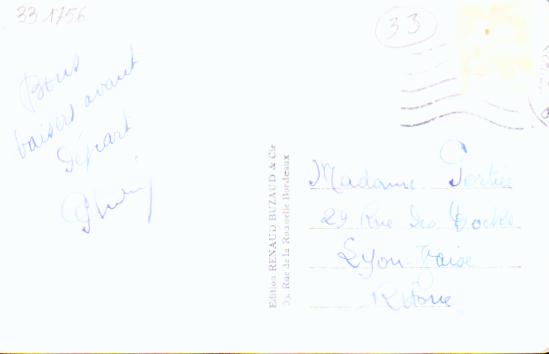 33 1756
33
Bons
baisers avant
Départ
Edition RENAUD BUZAUD & Cie
Rue de la Rousselle Bordeaux
Madame
29 Rue des
Lyon-Vaise
Rhône